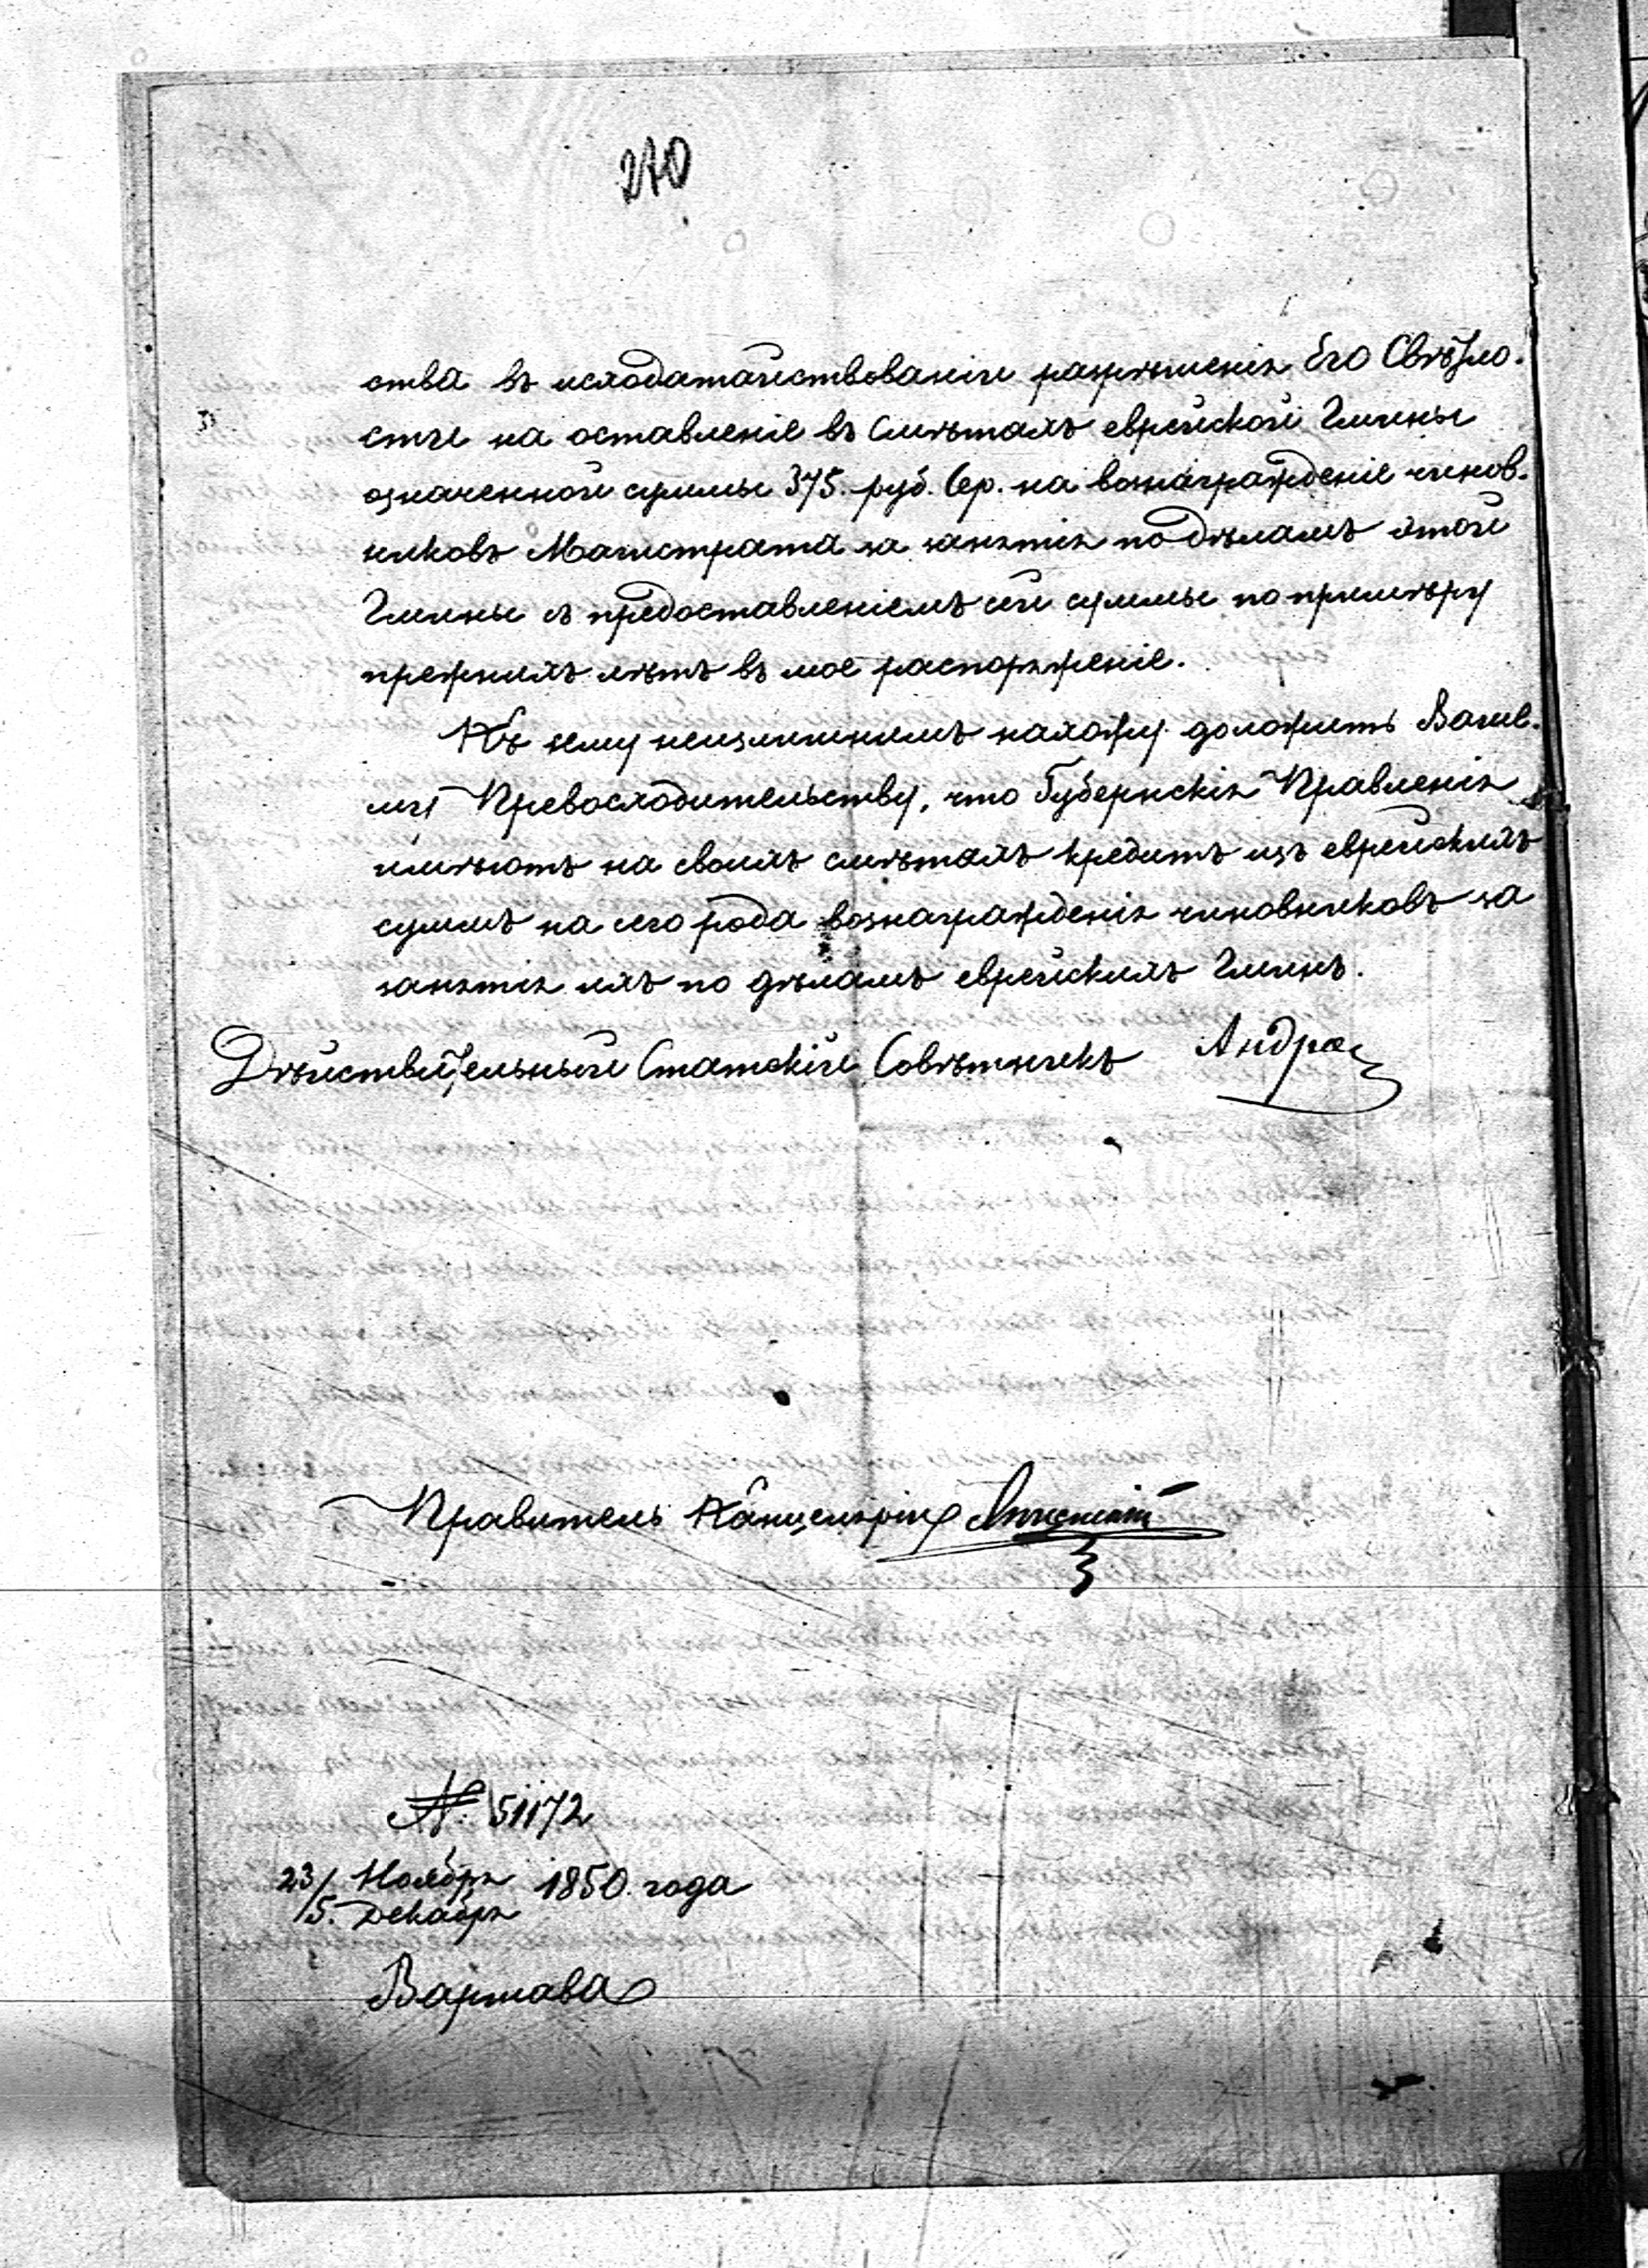 270
ства въ исходатайствованіи разрѣшенія Его Свѣтло-
сти на оставленіе въ смѣтахъ еврейской Гмины
означенной суммы 375. руб. сер. на вознагражденіе чинов-
никовъ Магистрата за занятія по дѣламъ этой
Гмины съ предоставленіемъ сей суммы по примѣру
прежнихъ лѣтъ въ мое распоряженіе.
Къ сему неизлишнимъ нахожу доложить Ваше-
му Превосходительству, что Губернскія Правленія
имѣютъ на своихъ смѣтахъ кредитъ изъ еврейскихъ
суммъ на сего рода вознагражденія чиновниковъ за
занятія ихъ по дѣламъ еврейскихъ Гминъ.
Дѣйствительный Статскій Совѣтникъ
Правитель Канцеляріи
№. 51172
23/ Ноября 1850. года
/5. Декабря
Варшава